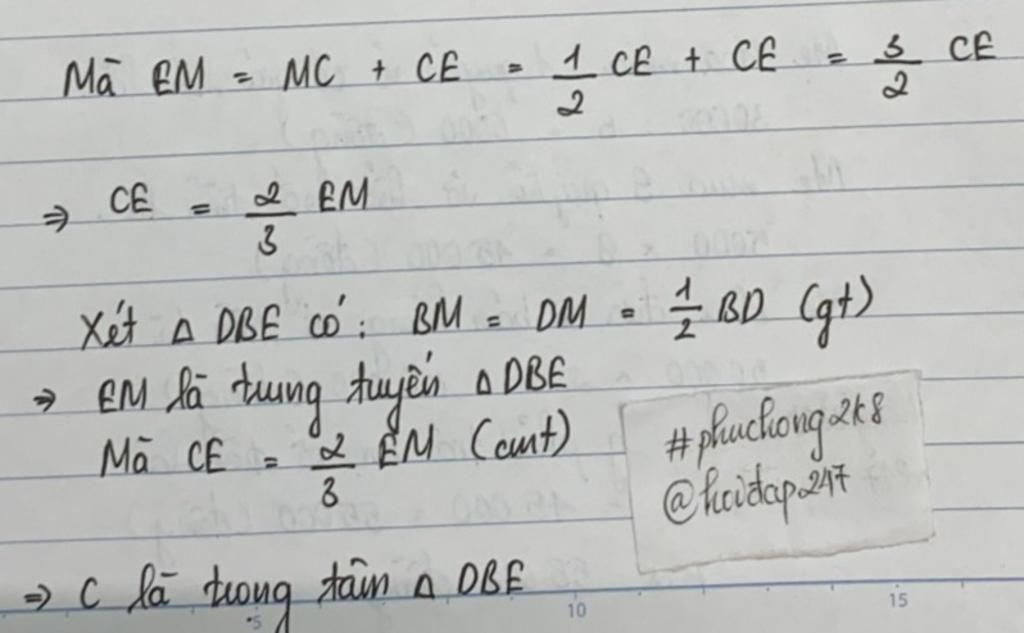 Mà EM = MC + CE = 1/2 CE + CE = 3/2 CE
⇒ CE = 2/3 EM
Xét Δ DBE có: BM = DM = 1/2 BD (gt)
⇒ EM là trung tuyến Δ DBE
Mà CE = 2/3 EM (cmt)
#phuchong2k8
@hoidap247
⇒ C là trọng tâm Δ DBE
5 10 15